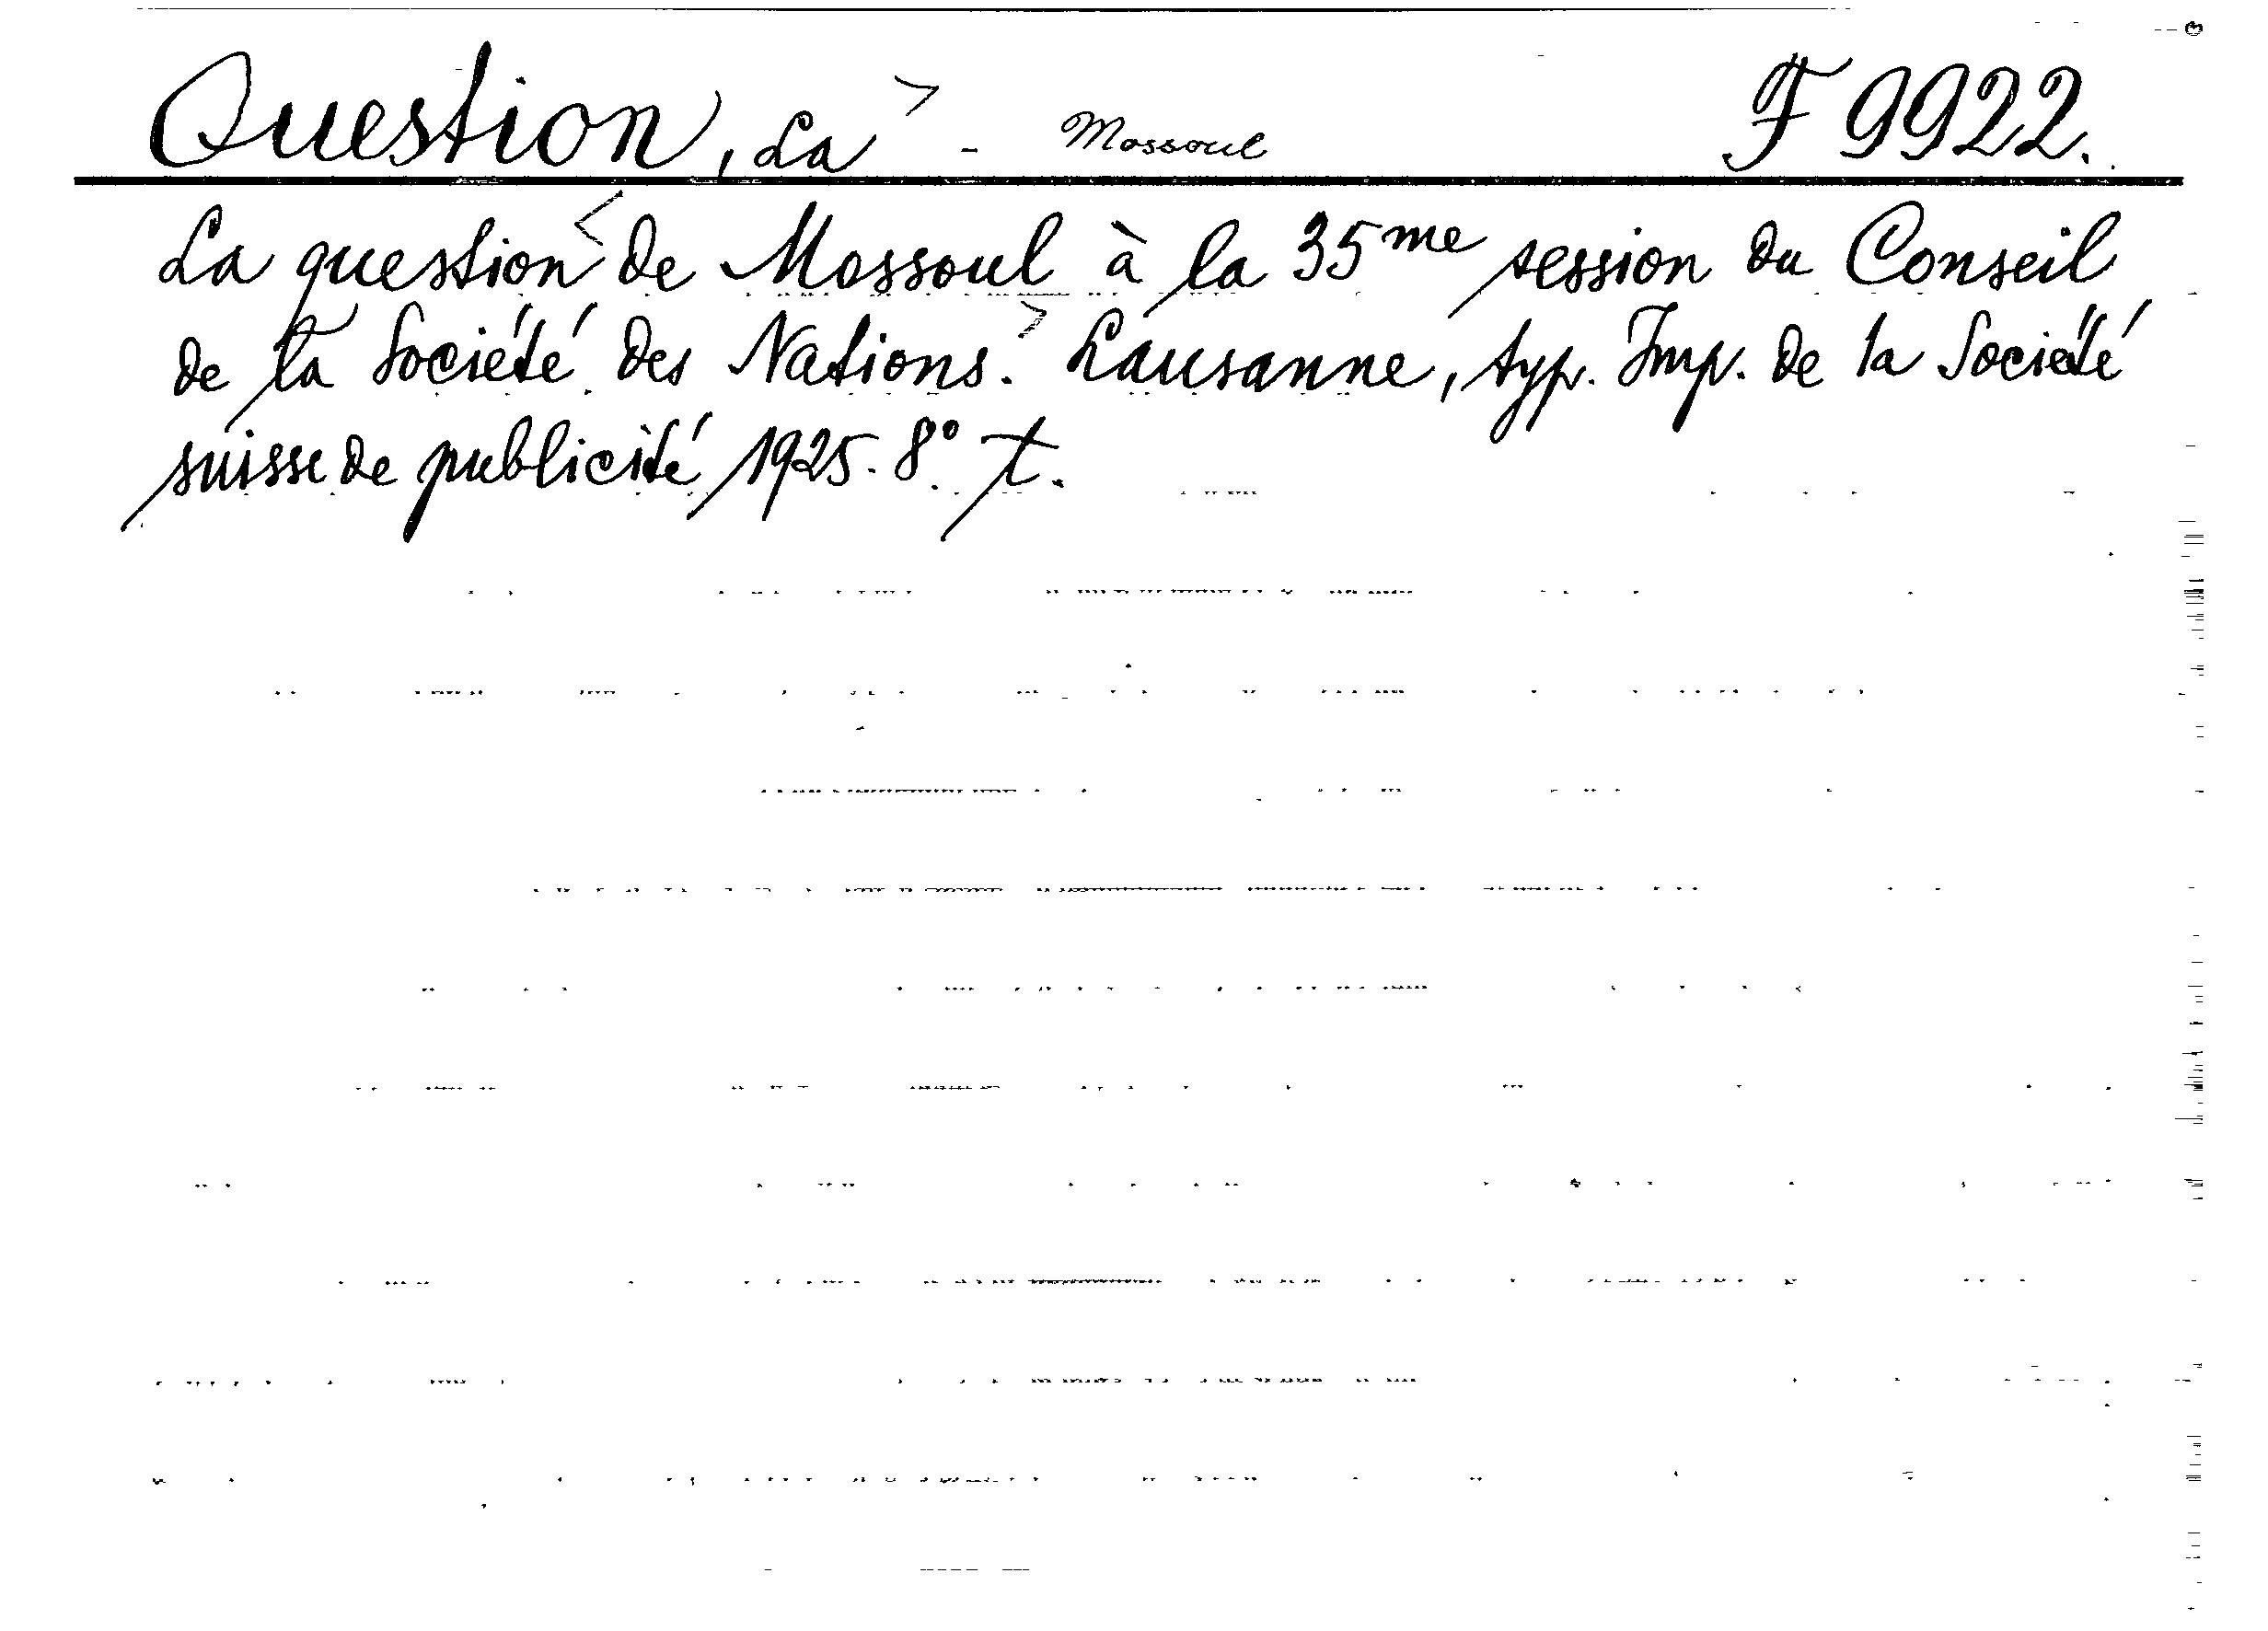 Question, La > - Mossoul F 9922.
La question < de Mossoul à la 35me session du Conseil
de la Société des Nations. > Lausanne, typ. Imp. de la Société
suisse de publicité 1925. 8° t.